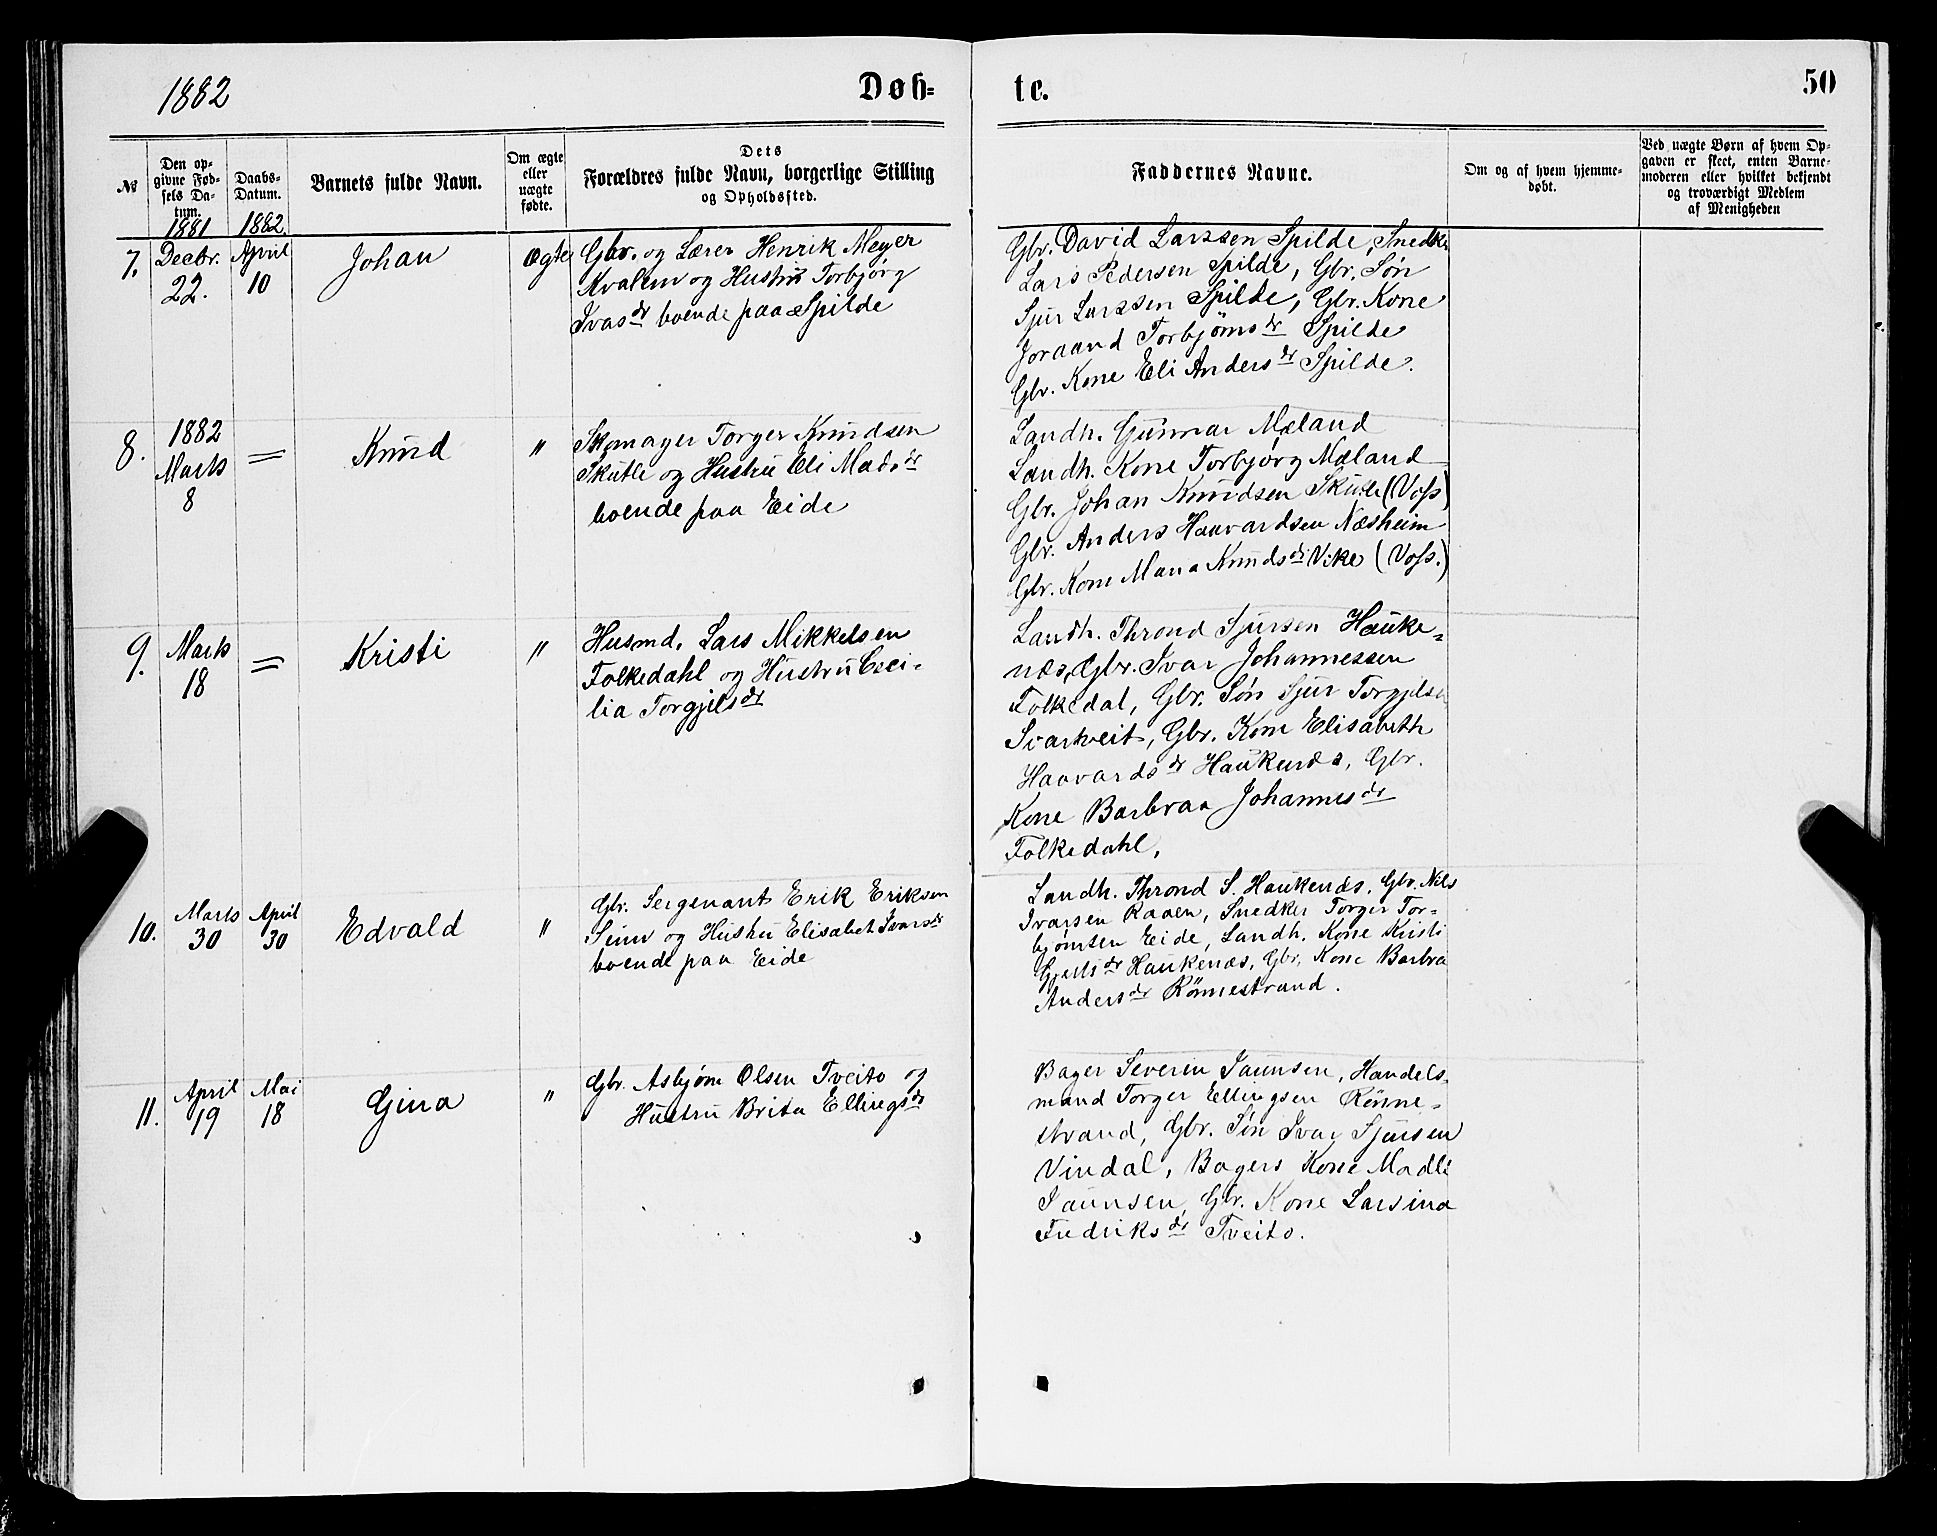 1882
Døb=
te.
50
№
Den op-
givne Fød-
sels Da-
tum.
1881
Daabs-
Datum.
1882
Barnets fulde Navn.
Om ægte
eller
uægte
fødte.
Dets
Forældres fulde Navn, borgerlige Stilling
og Opholdssted.
Faddernes Navne.
Om og af hvem hjemme-
døbt.
Ved uægte Børn af hvem Op-
gaven er skeet, enten Barne-
moderen eller hvilket bekjendt
og troværdigt Medlem
af Menigheden
7.
Decbr.
22.
April
10
Johan
Ægte
Gbr. og Lærer Henrik Meyer
Kvalem og Hustru Torbjørg
Ivarsdr boende paa Spilde
Gbr. David Larssen Spilde, Snedker
Lars Pedersen Spilde, Gbr. Søn
Sjur Larssen Spilde, Gbr. Kone
Joraand Torbjørnsdr Spilde
Gbr. Kone Eli Andersdr Spilde.
8.
1882
Marts
8
=
Knud
"
Skomager Torger Knudsen
Skutle og Hustru Eli Madsdr
boende paa Eide
Landh. Gunnar Mæland
Landh. Kone Torbjørg Mæland
Gbr. Johan Knudsen Skutle (Voss)
Gbr. Anders Haavardsen Næsheim
Gbr. Kone Maria Knudsdr Vike (Voss.)
9.
Marts
18
=
Kristi
"
Husmd. Lars Mikkelsen
Folkedahl og Hustru Ceci-
lia Torgjilsdr
Landh. Thrond Sjursen Hauke-
næs, Gbr. Ivar Johannessen
Folkedal, Gbr. Søn Sjur Torgjilsen
Svartveit, Gbr. Kone Elisabeth
Haavardsdr Haukenæs, Gbr.
Kone Barbraa Johannesdr
Folkedahl,
10.
Marts
30
April
30
Edvald
"
Gbr. Sergeant Erik Eriksen
Seim og Hustru Elisabet Ivarsdr
boende paa Eide
Landh. Thrond S. Haukenæs, Gbr. Nils
Ivarsen Raaen, Snedker Torger Tor-
bjørnsen Eide, Landh. Kone Kristi
Gjertsdr Haukenæs, Gbr. Kone Barbra
Andersdr Rønnestrand.
11.
April
19
Mai
18
Gina
"
Gbr. Asbjørn Olsen Tveito og
Hustru Brita Ellingsdr
Bager Severin Jaunsen, Handels-
mand Torger Ellingsen Rønne-
strand, Gbr. Søn Ivar Sjursen
Vindal, Bagers Kone Madli
Jaunsen, Gbr. Kone Larsina
Fredriksdr Tveito.